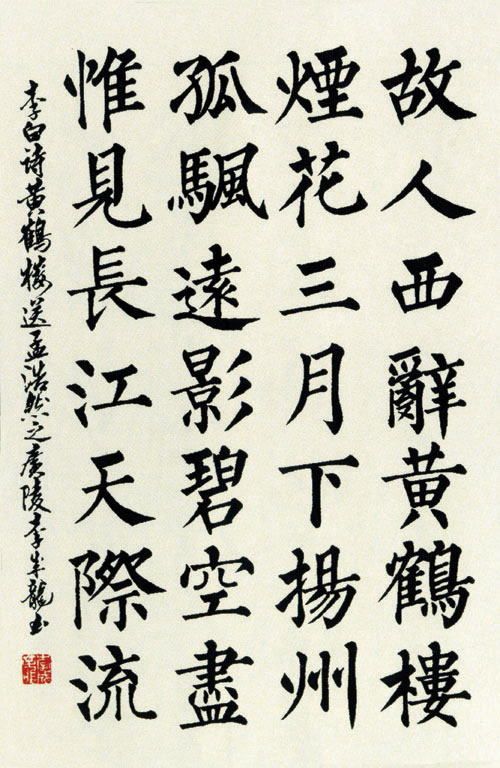 故人西辭黄鶴樓
煙花三月下揚州
孤颿遠影碧空盡
惟見長江天際流
李白诗黄鶴楼送孟浩然之廣陵李成龍书